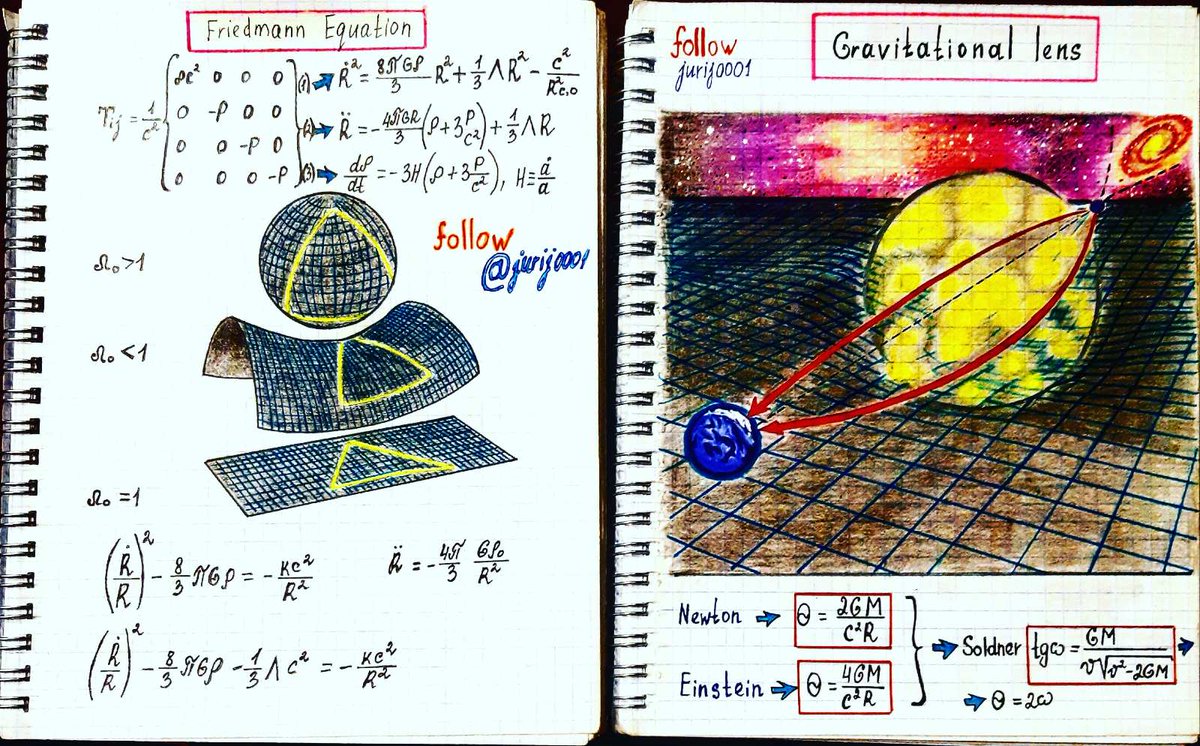 Friedmann Equation
T_ij = 1/c² { ρc² 0 0 0
0 -P 0 0
0 0 -P 0
0 0 0 -P }
(1) ➡ Ṙ² = 8πGρ/3 R² + 1/3 ΛR² - c²/R²c,0
(2) ➡ R̈ = -4πGR/3 (ρ + 3P/c²) + 1/3 ΛR
(3) ➡ dρ/dt = -3H(ρ + 3P/c²), H ≡ ȧ/a
follow
@jurij0001
Ω₀ > 1
Ω₀ < 1
Ω₀ = 1
(Ṙ/R)² - 8/3 πGρ = - kc²/R²
R̈ = - 4π/3 Gρ₀/R²
(Ṙ/R)² - 8/3 πGρ - 1/3 Λc² = - kc²/R²
follow
jurij0001
Gravitational lens
Newton ➡ Θ = 2GM/c²R
Einstein ➡ Θ = 4GM/c²R
➡ Soldner tgω = GM/v√(v²-2GM) ➡
➡ Θ = 2ω